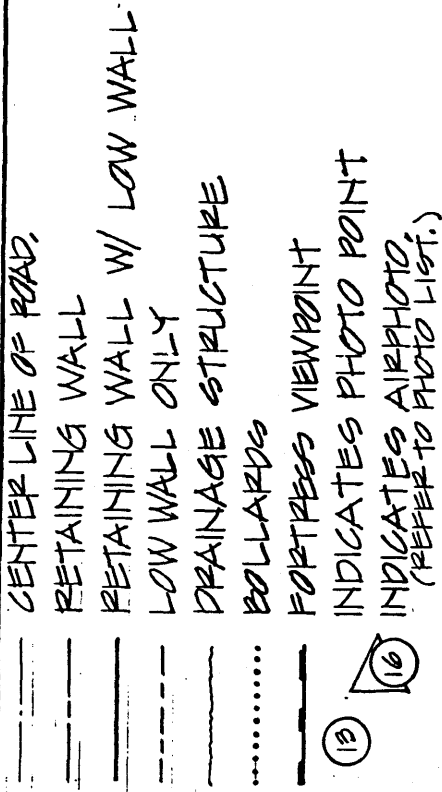 CENTER LINE OF ROAD.
RETAINING WALL
RETAINING WALL W/ LOW WALL
LOW WALL ONLY
DRAINAGE STRUCTURE
BOLLARDS
FORTRESS VIEWPOINT
13 INDICATES PHOTO POINT
16 INDICATES AIRPHOTO.
(REFER TO PHOTO LIST.)